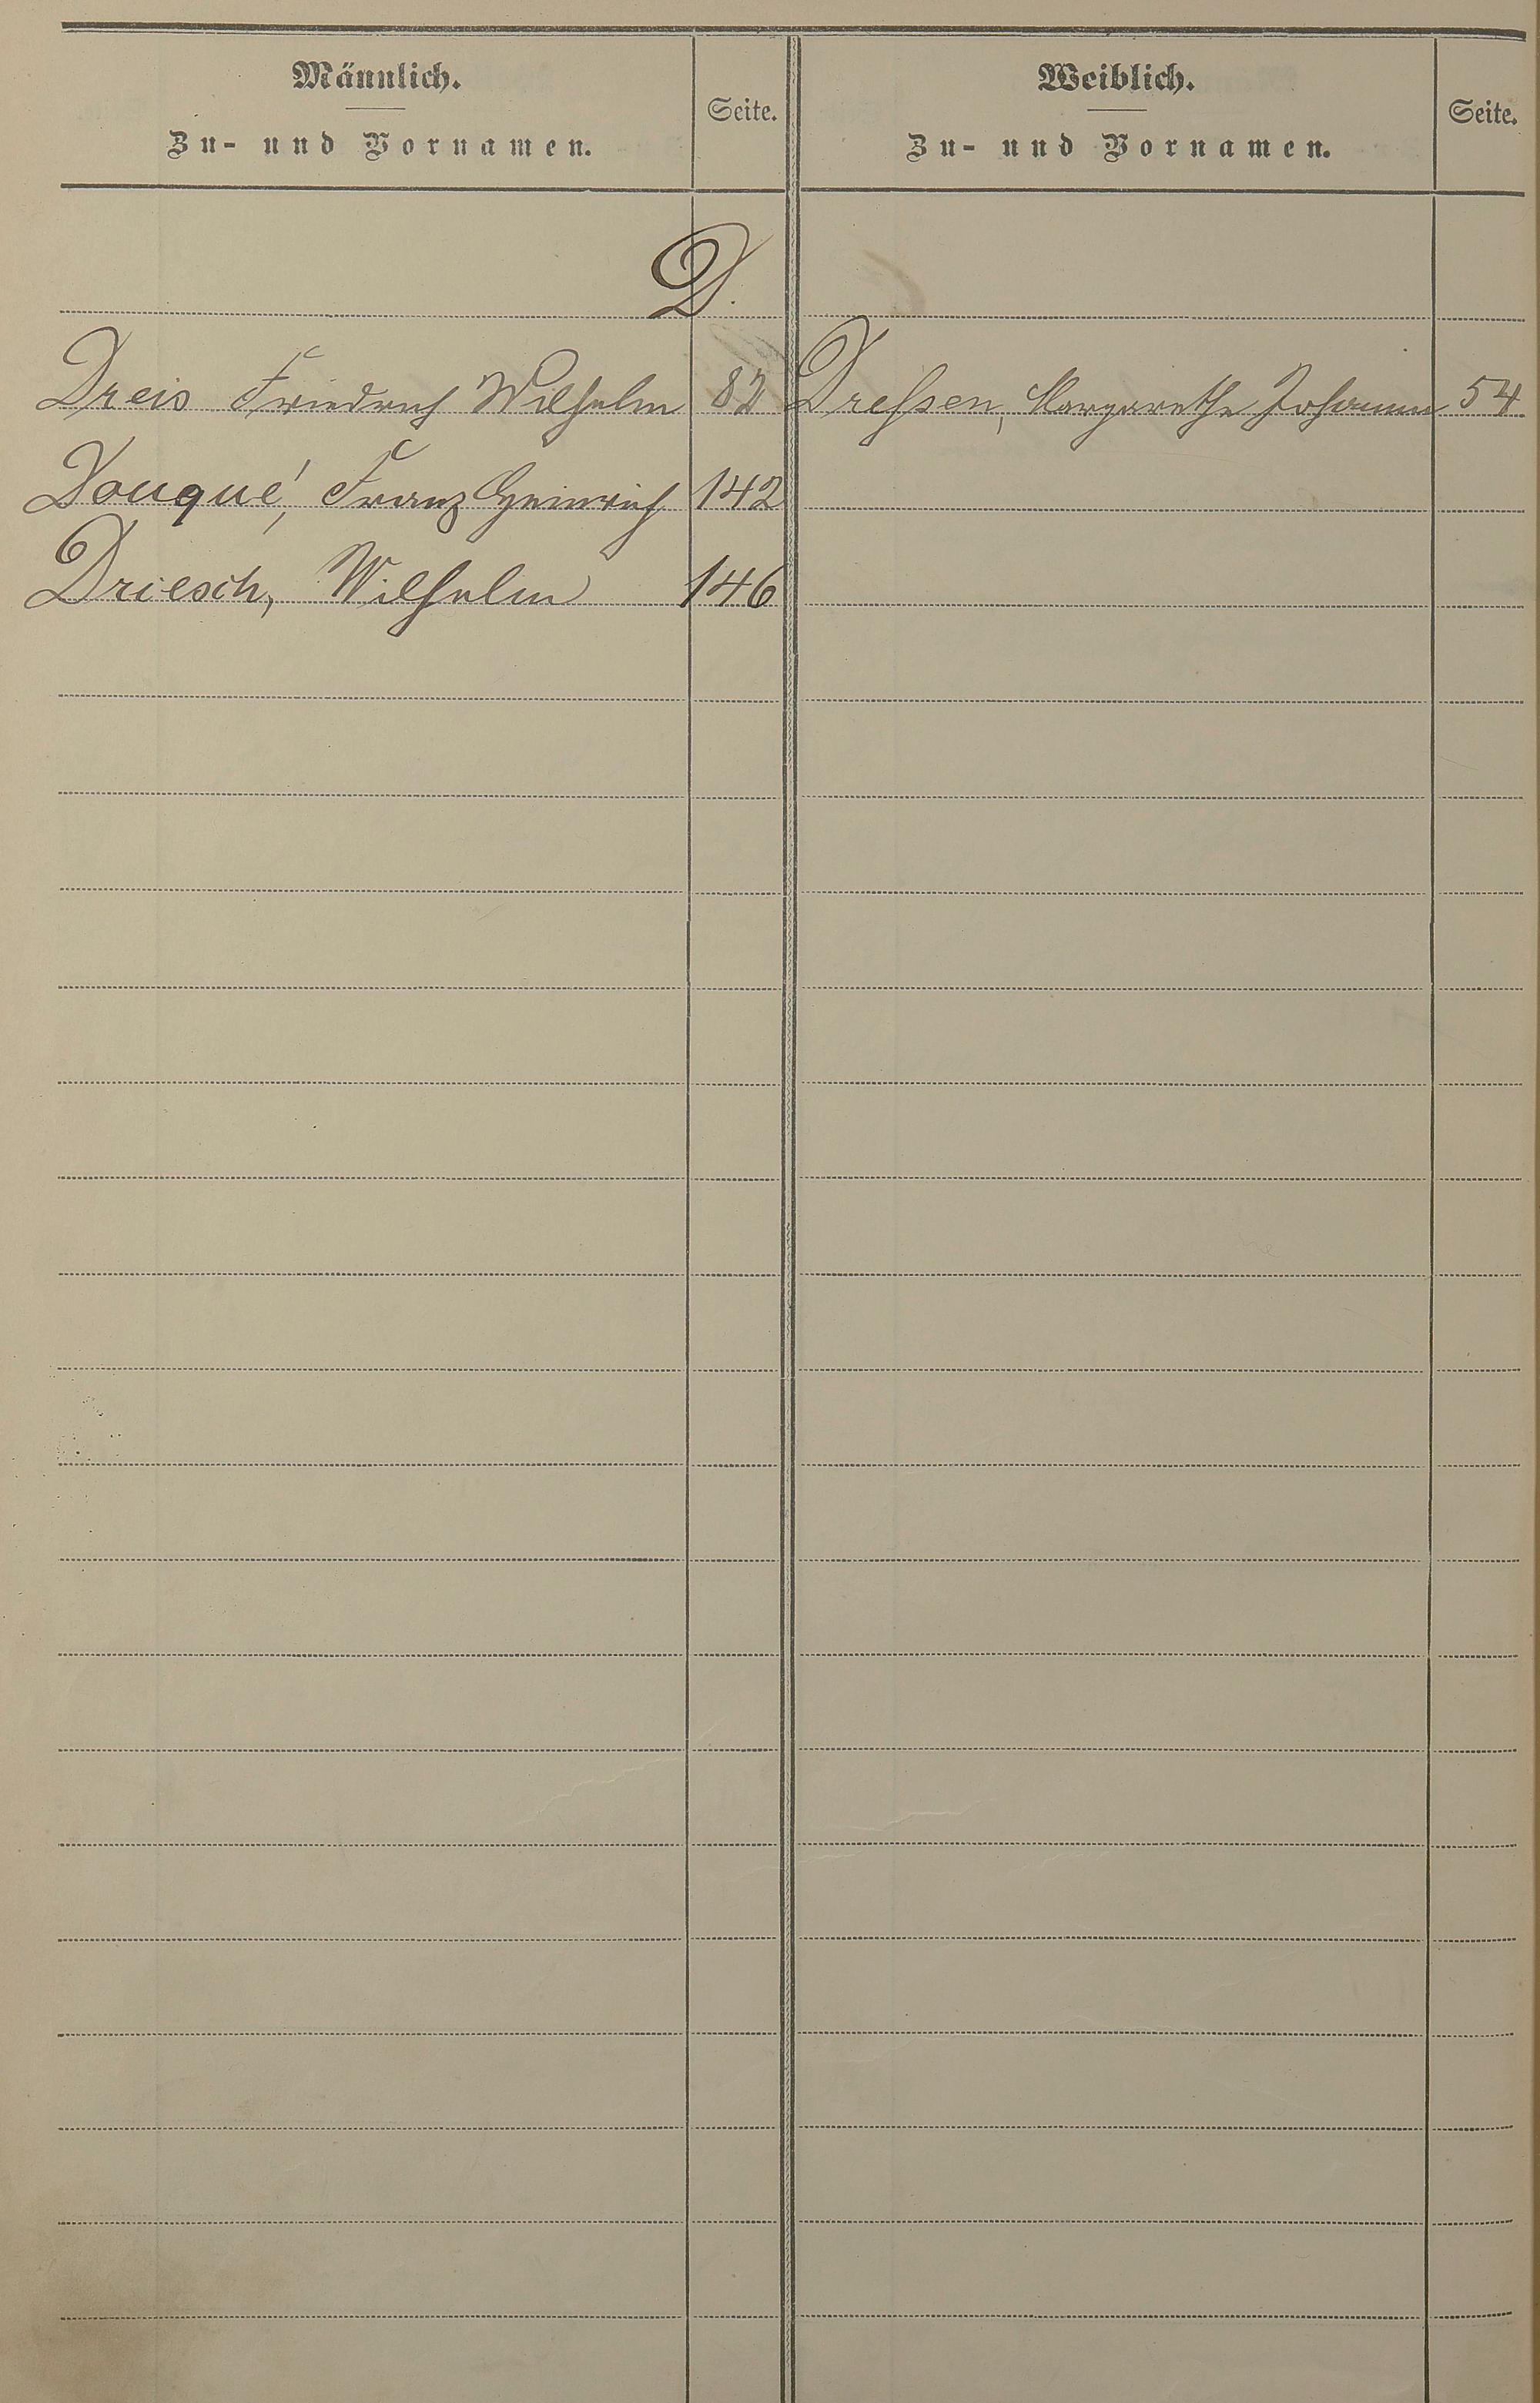 Männlich.
Zu- und Vornamen.
Seite.
Weiblich.
Zu- und Vornamen.
Seite.
D.
Dreis Friedrich Wilhelm 82 Dreßen, Margarethe Johanna 54
Douqué, Franz Heinrich 142
Driesch, Wilhelm 146